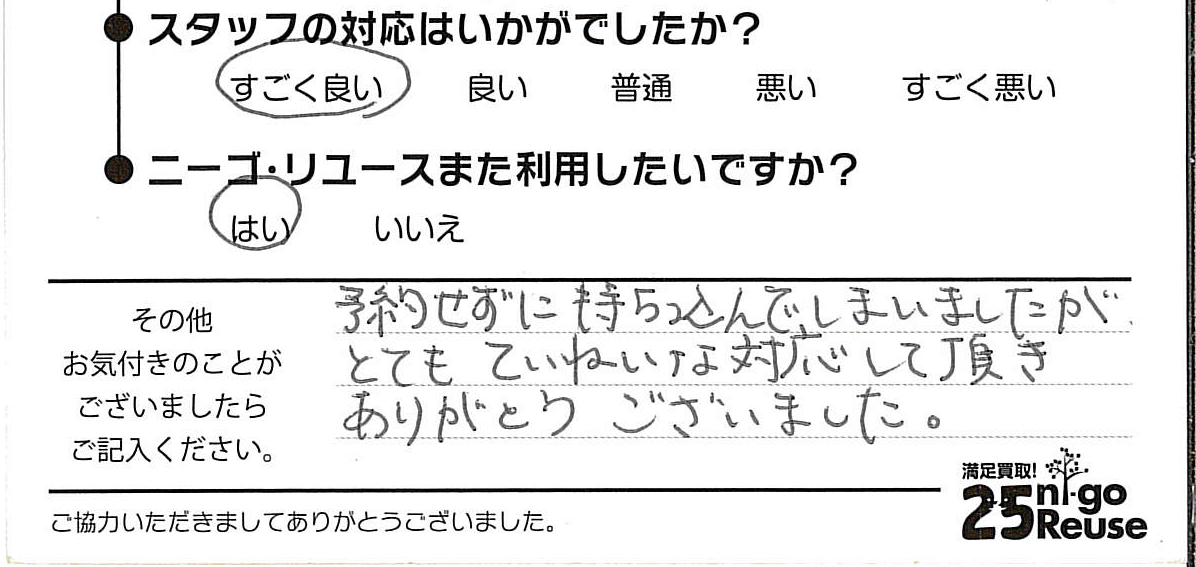 スタッフの対応はいかがでしたか？
すごく良い 良い 普通 悪い すごく悪い
ニーゴ・リユースまた利用したいですか？
はい いいえ
その他
お気付きのことが
ございましたら
ご記入ください。
予約せずに持ちっ込んでしまいましたが、
とても ていねいな対応して頂き
ありがとう ございました。
満足買取!
25 ni-go
Reuse
ご協力いただきましてありがとうございました。